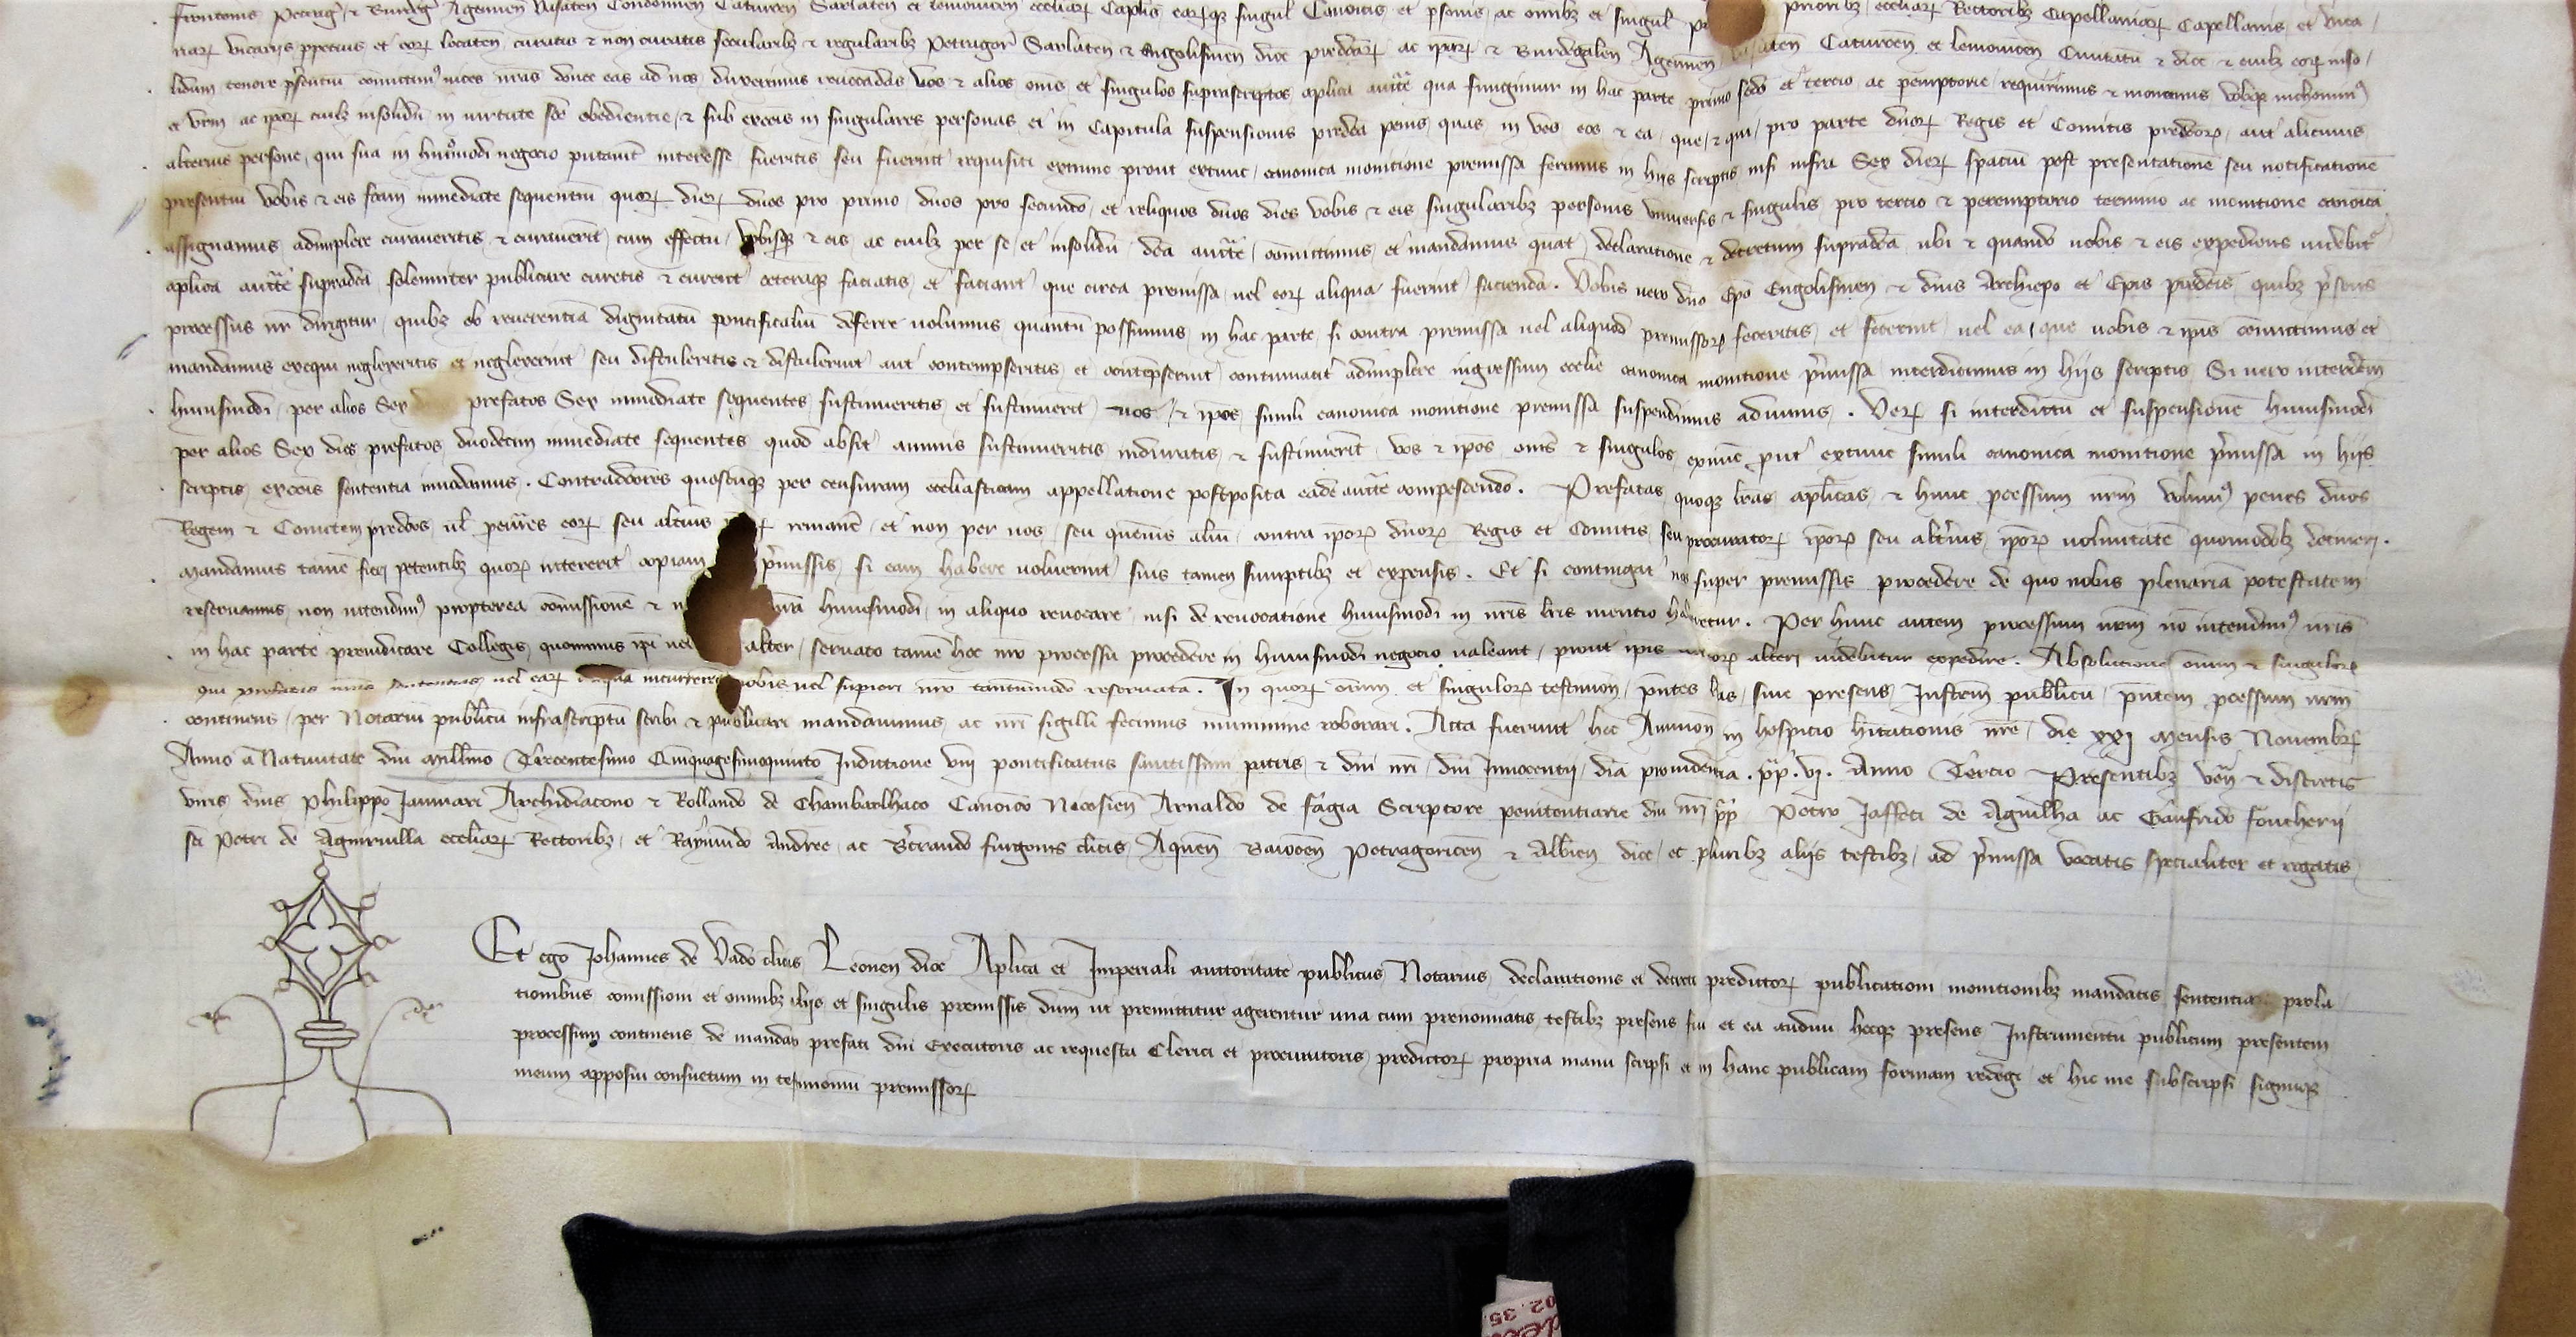 frontonis Petragor̃ et Burdeg̃ Agennen̄ Vasaten̄ Condomien̄ Caturcen̄ Sarlaten̄ et lemouicen̄ eccliarꝝ Caplis earꝝqꝫ singul Canoicis et ꝑsonis ac omibꝫ et singul prioribꝫ eccliarꝝ Rectoribꝫ Capellaniarꝝ Capellanis et vica
riarꝝ vicariis ꝑpetuis et eorꝝ locaten̄ curatis ⁊ non curatis secularibꝫ ⁊ regularibꝫ Petragor̃ Sarlaten̄ ⁊ Engolismen̄ dioc̄ predcārꝝ ac ip̄arꝝ ⁊ Burdegalen̄ Agennen̄ Caturcen̄ et lemouicen̄ Ciuitatū ⁊ dioc̄ ⁊ cuilꝫ eorꝝ inso
lidum tenore p̄sentiū cōmittimꝰ vices nr̄as donec eas ad nos duxerimus reuocādas Vos ⁊ alios om̄s et singulos suprascriptos aplica auct̄e qua fungimur in hac parte primo scdo et tercio ac peremptorie requirimus ⁊ monemus vobisqꝫ iniungimꝰ
et vr̄m ac ip̄orꝝ cuilꝫ insolidū in virtute scē obedientie ⁊ sub excōis in singulares personas et in Capitula suspensionis predcā penis quas in vos eos ⁊ ea que ⁊ qui pro parte dn̄orꝝ Regis et Comitis predcorꝝ aut alicuius
alterius persone qui sua in huiꝰmodi negocio putauīt interesse fueritis seu fuerint requisiti extunc prout extunc canonica monitione premissa ferimus in hiis scriptis nisi infra Sex dierꝝ spaciū post presentationē seu notificationē
presentiū vobis ⁊ eis fcām inmediate sequentiū quorꝝ dierꝝ duos pro primo duos pro secundo et reliquos duos dies vobis ⁊ eis singularibꝫ personis vniuersis ⁊ singulis pro tercio ⁊ peremptorio termino ac monitione canoica
assignamus adimplere curaueritis ⁊ curauerīt cum effectu vobisqꝫ ⁊ eis ac cuilꝫ per se et insolidū dcā auct̄e cōmittimus et mandamus quat̄ declaratione ⁊ decretum supradcā vbi ⁊ quando vobis ⁊ eis expediens videbit̄
aplica auct̄e supradcā solenniter publicare curetis ⁊ curent ceteraqꝫ faciatis et faciant que circa premissa vel eorꝝ aliqua fuerint facienda. Vobis vero dno Epo Engolismen̄ ⁊ dnis Archiepo et Epis predcis quibꝫ p̄sens
processus nr̄ dirigitur quibꝫ ob reuerentiā dignitatū pontificaliū deferre volumus quantū possumus in hac parte si contra premissa vel aliquod premissorꝝ feceritis et fecerint vel ea que vobis ⁊ ip̄is cōmittimus et
mandamus exequi neglexeritis et neglexerint seu distuleritis ⁊ distulerint aut contempseritis et contēpserint contumacit̄ adimplere ingressum ecclie canonica monitione p̄missa interdicimus in hiis scriptis Si vero interdcm̄
huiusmodi per alios Sex prefatos Sex inmediate sequentes sustinueritis et sustinuerīt vos ⁊ ip̄os simili canonica monitione premissa suspendimus a diuinis. Verꝝ si interdictū et suspensionē huiusmodi
per alios Sex dies prefatos duodecim inmediate sequentes quod absit animis sustinueritis induratis ⁊ sustinuerīt vos ⁊ ip̄os om̄s ⁊ singulos exnūc put extunc simili canonica monitione p̄missa in hiis
scriptis excōis sententia innodamus. Contradictores quoscūqꝫ per censuram eccliasticam appellatione postposita eadē auct̄e compescendo. Prefatas quoqꝫ lr̄as aplicas ⁊ hunc ꝓcessum nr̄m volumꝰ penes dn̄os
Regem ⁊ Comitem predcos vl ꝓcūr̄es eorꝝ seu alterius remanē et non per nos seu quemuis aliū contra ip̄orꝝ dn̄orꝝ Regis et Comitis seu procuratorꝝ ip̄orꝝ seu alt̄ius ip̄orꝝ voluntatē quomodolꝫ detineri.
Mandamus tamē fieri petentibꝫ quorꝝ intererit copiam p̄missis si eam habere voluerint suis tamen sumptibꝫ et expensis. Et si contingat nos super premissis procedere de quo nobis plenariā potestatem
reseruamus non intendimꝰ propterea cōmissionē ⁊ nr̄ā huiusmodi in aliquo reuocare nisi de reuocatione huiusmodi in nr̄is lr̄is mentio haberetur. Per hunc autem processum nr̄m nō intendimꝰ nr̄is
in hac parte preiudicare Collegis quominus ip̄i vel alter seruato tamē hoc nr̄o processu procedere in huiusmodi negocio valeant prout ipis alteri videbitur expedire. Absolutione om̄ium ⁊ singulorꝝ
qui prefatis nr̄ās sententias vel earꝝ incurrerint nobis vel supiori nr̄o tantūmodo reseruata. In quorꝝ om̄ium et singulorꝝ testimoniū p̄ntes lr̄as siue presens Instr̄m publicū p̄ntem ꝓcessum nr̄m
continens per Notariū publicū infrascriptū scribi ⁊ publicari mandauimus ac nr̄i sigilli fecimus munimine roborari. Acta fuerunt hec Auinion̄ in hospicio hitationis nr̄e die xxj Mensis Nouembrꝝ
Anno a Natiuitate dn̄i Millm̄o Tricentesimo Quinquagesimoquinto Indictione viij pontificatus sanctissimi patris ⁊ dn̄i nr̄i dn̄i Innocentij diā prouidentia .pp̄. vj. Anno Tercio Presentibꝫ ven̄ ⁊ discretis
viris dn̄is Philippo Januarii Archidiacono ⁊ Rollando de Chambarlhaco Canoico Nicosien̄ Arnaldo de fargia Scriptore penitentiarie dn̄i nr̄i pp̄ Petro Jaffeti de Aguilha ac Gaufrido foucherij
sci Petri de Aguirviulla eccliarꝝ Rectoribꝫ et Raymūdo Andree ac Bt̄rando furgonis clicis Aquen̄ Baiocen̄ Petragoricen̄ ⁊ Albien̄ dioc̄ et pluribꝫ aliis testibꝫ ad p̄missa vocatis specialiter et rogatis
Et ego Johannes de Vado clicus Leonen̄ dioc̄ Aplica et Imperiali auctoritate publicus Notarius declarationis et decreti predictorꝝ publicationi monitionibꝫ mandatis sententia prola
tionibus cōmissioni et omnibꝫ aliis et singulis premissis dum vt premittitur agerentur vna cum prenominatis testibꝫ presens fui et ea audiui hocqꝫ presens Instrumentū publicum presentem
processum continens de mandato prefati dn̄i Executoris ac requesta Clerici et procuratoris predictorꝝ propria manu scripsi et in hanc publicam formam redegi et hic me subscripsi signūqꝫ
meum apposui consuetum in testimoniū premissorꝝ